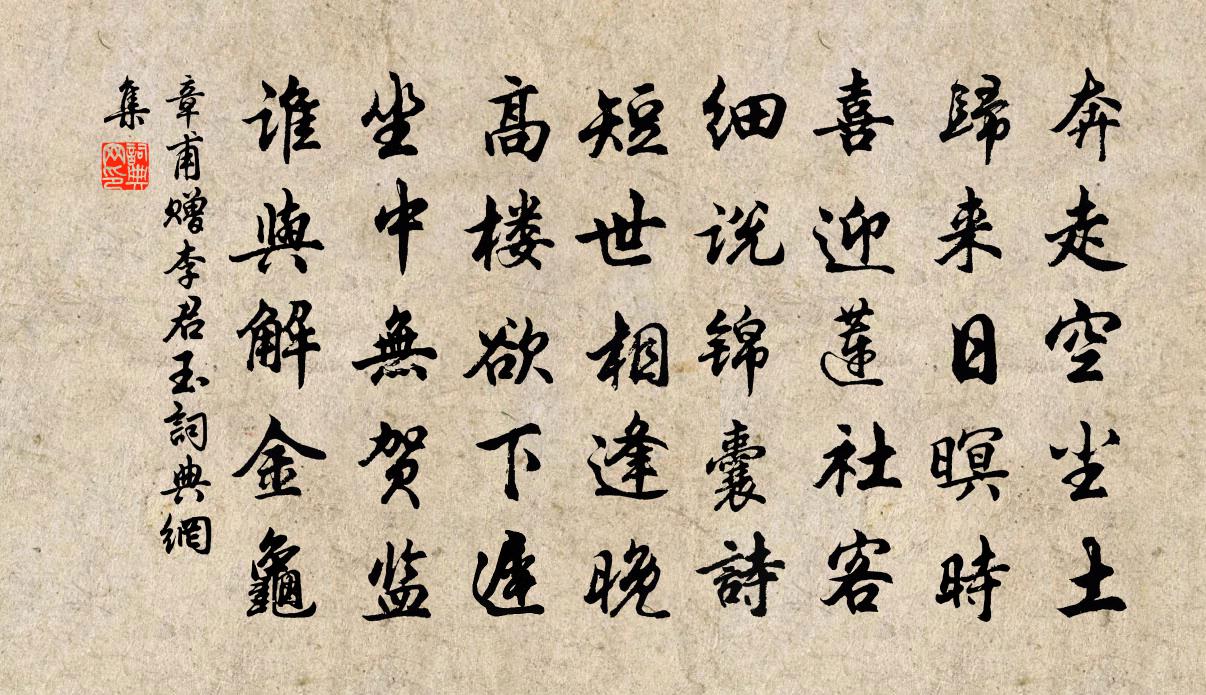 奔走空尘土
歸来日暝時
喜迎蓮社客
细说锦囊詩
短世相逢晚
高楼欲下遲
坐中無贺监
谁與解金龜
章甫赠李君玉詞典網
集
詞典
网印